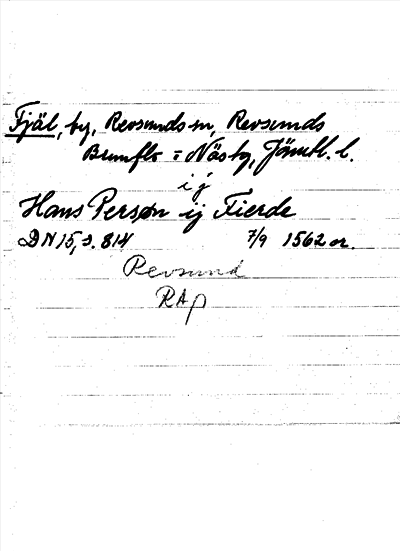 Fjäl, by, Revsunds sn, Revsunds
Brunflo o Näs tg, Jämtl. l.
ij
Hans Persøn ij Fierde
DN 15, s. 814 7/9 1562 or.
Revsund
RAp